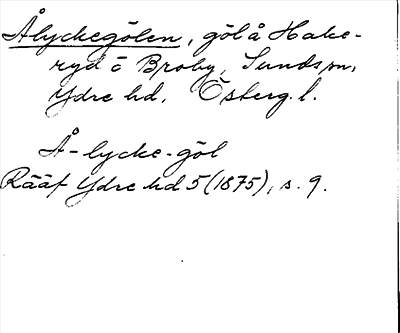 Ålyckegölen, göl å Hake-
ryd o Broby, Sunds sn,
Ydre hd, Österg. l.
Å-lycke-göl
Rääf Ydre hd 5 (1875), s. 9.